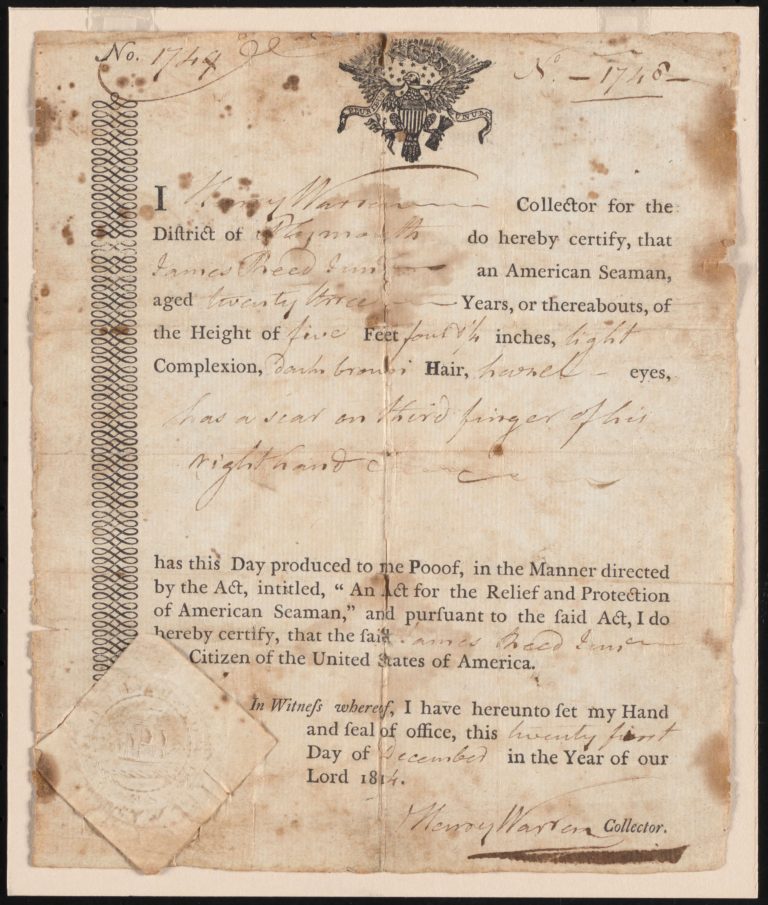 No. 1749
No. — 1748 —
E PLURIBUS UNUM
I Henry Warren Collector for the
District of Plymouth do hereby certify, that
James Reed Junr an American Seaman,
aged twenty three Years, or thereabouts, of
the Height of five Feet four ¼ inches, light
Complexion, dark brown Hair, haznel eyes,
has a scar on third finger of his
right hand
has this Day produced to me Pooof, in the Manner directed
by the Act, intitled, “ An Act for the Relief and Protection
of American Seaman,” and pursuant to the said Act, I do
hereby certify, that the said James Reed Junr
Citizen of the United States of America.
In Witness whereof, I have hereunto set my Hand
and seal of office, this twenty first
Day of December in the Year of our
Lord 1814.
Henry Warren Collector.